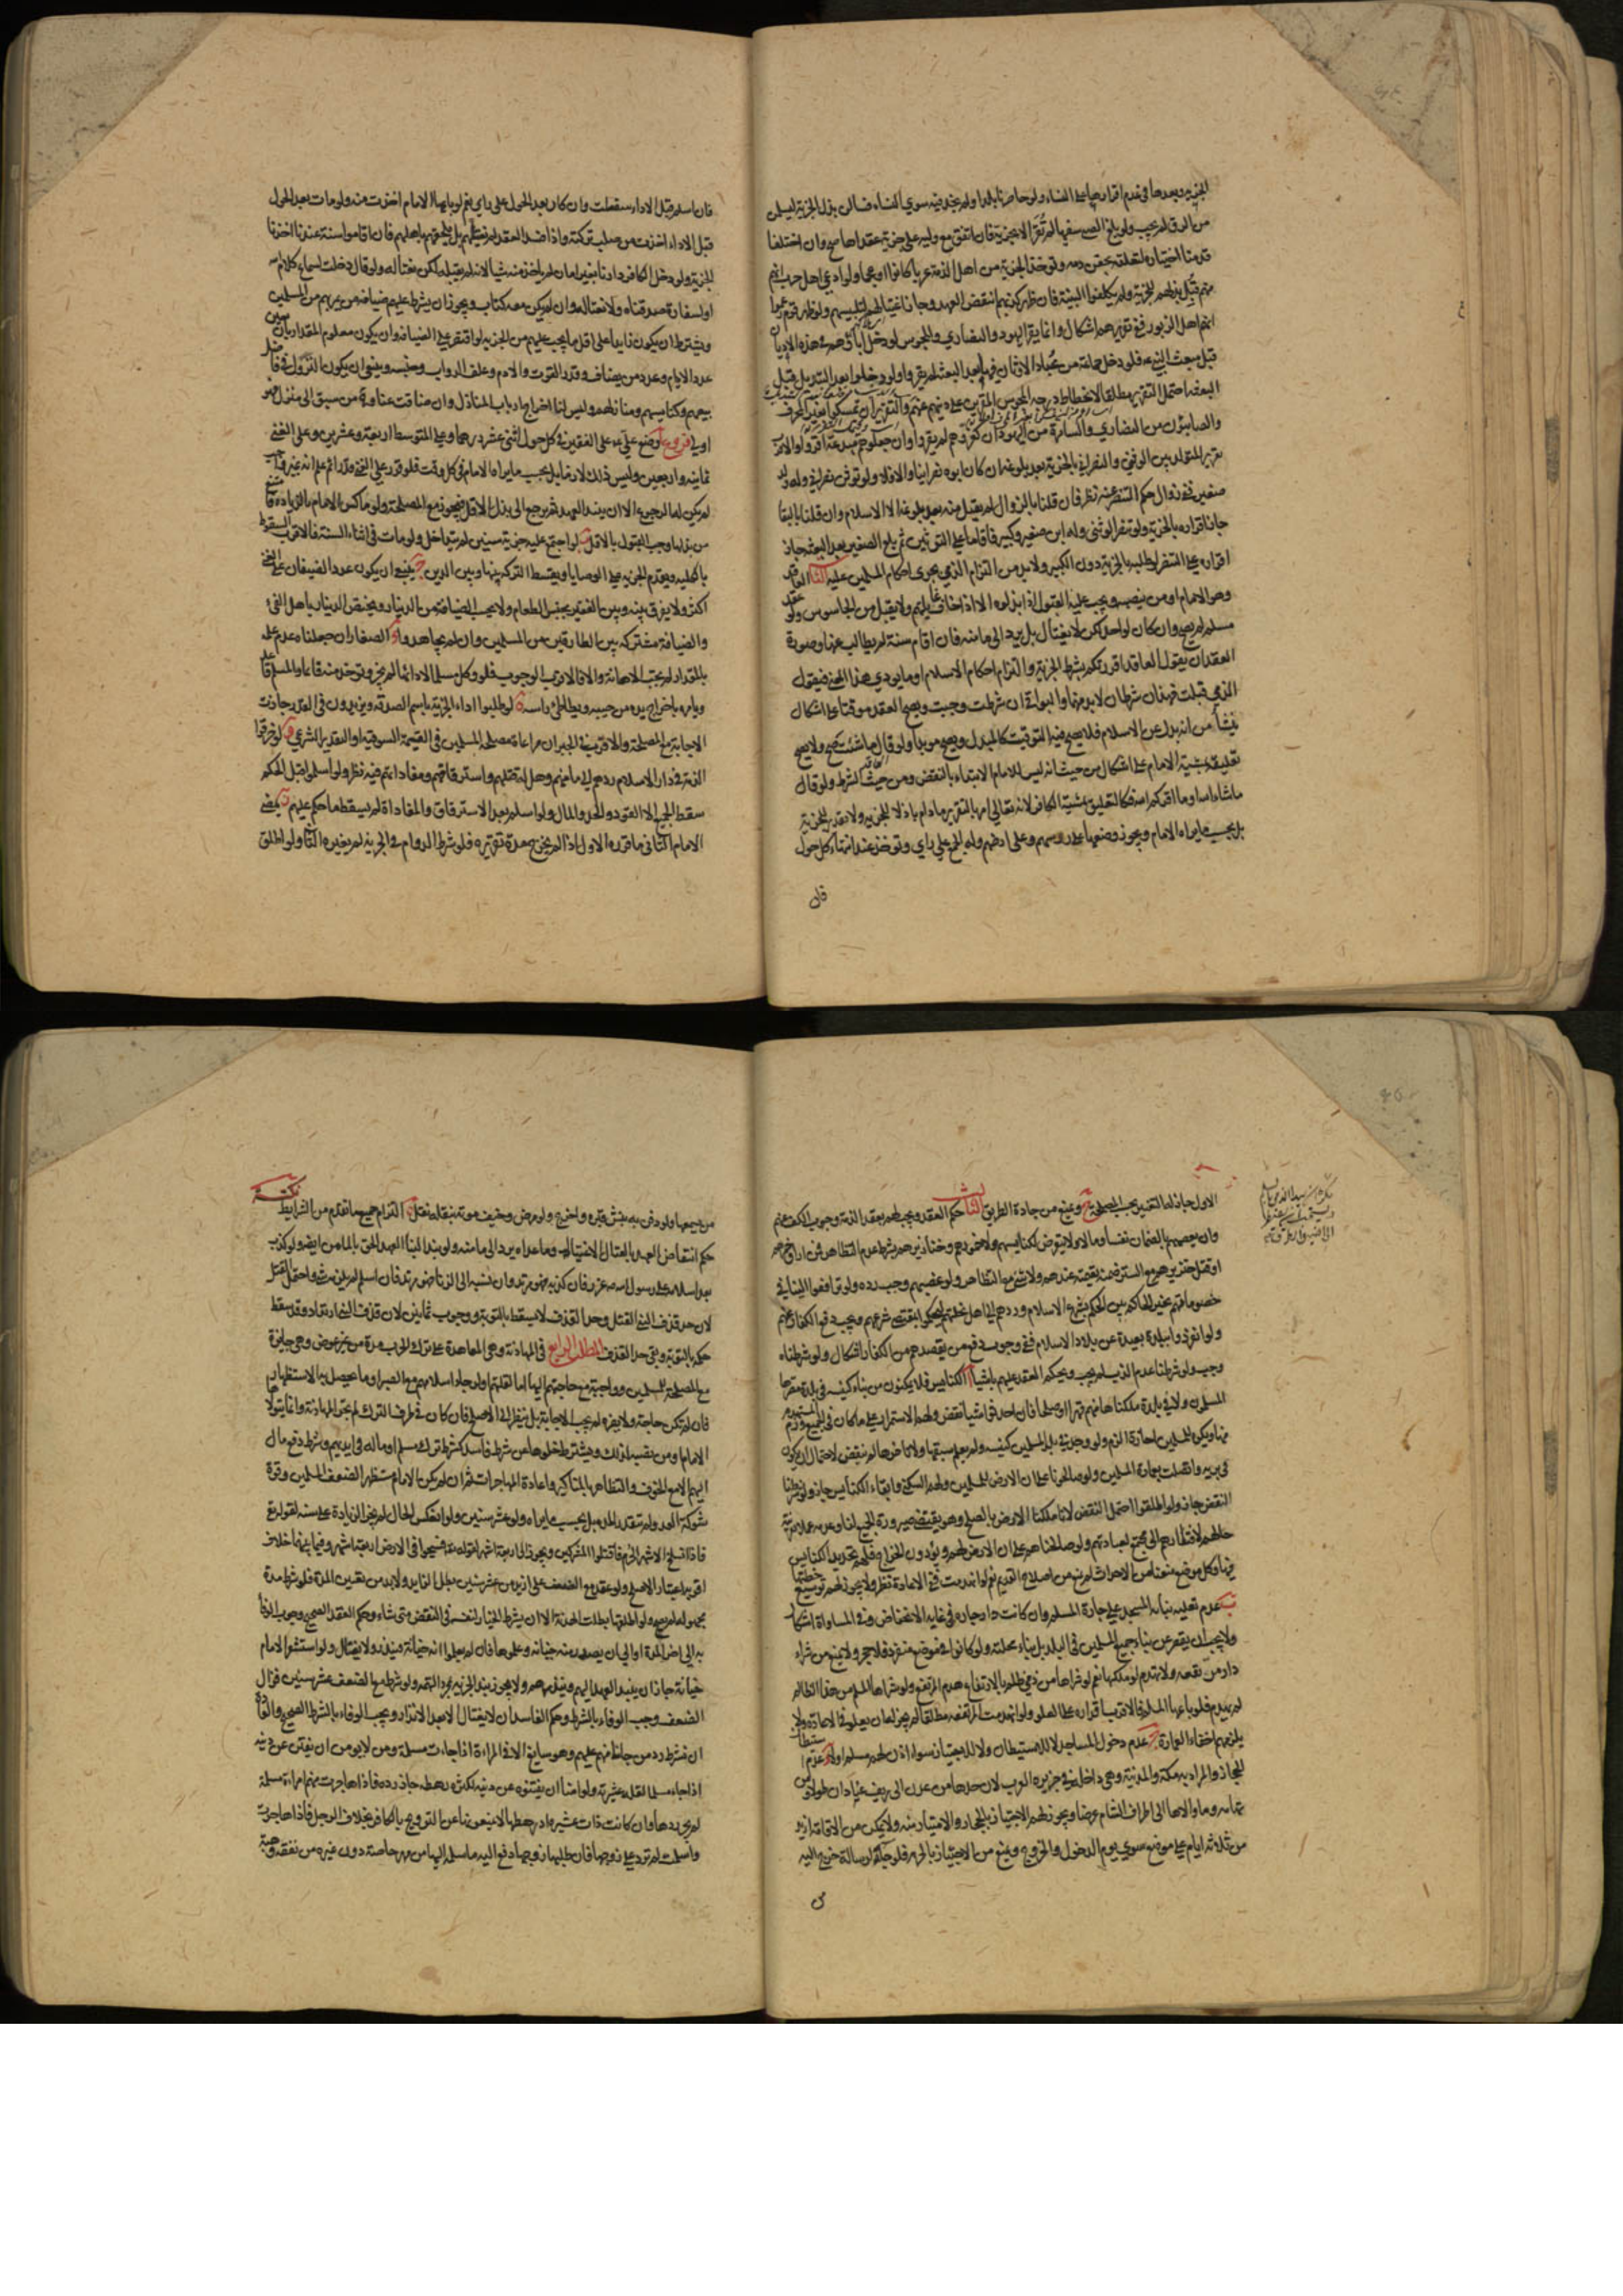 الجزية بعدها في عدم اقرارها على النساء ولو حاصرنا بلدا ولم نجد فيه سوى النساء فسألن بذل الجزية ليسلمن
من الرق لم يجب ولو بلغ الصبي سفيها لم تُقرّ الا بجزية فان اتفق مع وليه على جزية عقداها صح وان اختلفا
قدمنا اختياره لتعلقه بحقن دمه وتوخذ الجزية من اهل الذمة عربا كانوا او عجما ولو ادعى اهل حرب انهم
منهم قُبل بذلهم للجزية ولم يكلفوا البينة فان ظهر كذبهم انتقض العهد وجاز اغتيالهم لتلبيسهم ولو ظهر قوم زعموا
انهم اهل الزبور ففي تقريرهم اشكال وانما يقر اليهود والنصارى والمجوس لو دخل اباؤهم في هذه الاديان
قبل مبعث النبي ع فلو دخل جماعة من عُبّاد الاوثان فيها بعد البعثة لم يقروا ولو دخلوا بعد التبديل قبل
البعثة احتمل التقرير مطلقا لانحطاط درجة المجوس المقرين على دينهم عنهم والتقرير ان تمسكوا بغير المحرف
والصابئون من النصارى والسامرة من اليهود ان كفروهم لم يقروا وان جعلوهم مبتدعة اقروا والاقرب
تقرير المتولد بين الوثني والنصراني بالجزية بعد بلوغه ان كان ابوه نصرانيا والا فلا ولو توثن نصراني وله ولد
صغير ففي زوال حكم التنصر عنه نظر فان قلنا بالزوال لم يقبل منه بعد بلوغه الا الاسلام وان قلنا بالبقا
جاز اقراره بالجزية ولو تنصر الوثني وله ابن صغير وكبير فاقاما على التوثن ثم بلغ الصغير بعد البعث جاز
اقراره على التنصر لو طلبه بالجزية دون الكبير ولا بد من التزام الذمي بجرى احكام المسلمين عليه الثا العاقد
وهو الامام او من ينصبه ويجب عليه القبول اذا بذلوه الا اذا خاف غايلتهم ولا يقبل من الجاسوس ولو عقد
مسلم لم يصح وان كان لواحد لكن لا يغتال بل يرد الى مامنه فان اقام سنة لم يطالب عنها وصورة
العقد ان يقول العاقد اقررتكم بشرط الجزية والتزام احكام الاسلام او ما يودي هذا المعنى فيقول
الذمي قبلت فهذان شرطان لا بد منهما والبواقي ان شرطت وجبت ويصح العقد موقتا على اشكال
ينشأ من انه بدل عن الاسلام فلا يصح فيه التوقيت كالمبدل ويصح موبدا ولو قال ما شئت صح ولا يصح
تعليقه بمشية الامام على اشكال من حيث انه ليس للامام الابتداء بالنقض ومن حيث الشرط ولو قال
ما شاء الله او ما اقركم الله فكالتعليق بمشية الكافر لانه تعالى امر بالتقرير ما دام باذلا للجزية ولا تقدير للجزية
بل بحسب ما يراه الامام ويجوز وضعها على روسهم وعلى ارضهم وله الجمع على راي وتوخذ عند انتهاء كل حول
فان
فان اسلم قبل الاداء سقطت وان كان بعد الحول على راي نعم لو باعها الامام اخذت منه ولو مات بعد الحول
قبل الاداء اخذت من صلب تركته واذا فسد العقد لم نقتلهم بل نلحقهم باهلهم فان اقاموا سنة عندنا اخذنا
الجزية ولو دخل الكافر دارنا بغير امان لم ياخذ منه شيا لانه لم يقبله لكن نغتاله ولو قال دخلت لسماع كلام الله
او لسفارة صدقناه ولا نغتاله وان لم يكن معه كتاب ويجوز ان يشرط عليهم ضيافة من يمر بهم من المسلمين
ويشترط ان يكون زايدا على اقل ما يجب عليهم من الجزية لو اقتصر على الضيافة وان يكون معلوم المقدار بان يعين
عدد الايام وعدد من يضاف وقدر القوت والادم وعلف الدواب وجنسه وينبغي ان يكون النزول في فاضل
بيعهم وكنايسهم ومنازلهم وليس لنا اخراج ارباب المنازل وان ضاقت عنا ومن سبق الى منزل فهو
اولى فروع ا وضع علي ع على الفقير في كل حول اثنى عشر درهما وعلى المتوسط اربعة وعشرين وعلى الغني
ثمانية واربعين وليس ذلك لازما بل يجب ما يراه الامام في كل وقت فلو قرر على الشخص قدرا ثم علم انه غير واجب
لم يكن لها الرجوع الا ان ينبذ العهد ثم يرجع الى بذل الاقل فيجوز مع المصلحة ولو ماكس الامام بالزيادة فامتنع
من بذلها وجب القبول بالاقل ب لو اجتمع عليه جزية سنين لم تتداخل ولو مات في اثناء السنة فالاقرب السقوط
بالكلية ويقدم الجزية على الوصايا ويقسط التركة بينها وبين الدين ج ينبغي ان يكون عدد الضيفان على الغني
اكثر ولا يفرق بينه وبين الفقير بجنس الطعام ولا يحسب الضيافة من الدينار ويختص الدينار باهل الفى
والضيافة مشتركة بين الطارقين من المسلمين وان لم يجاهدوا د الصغار ان جعلناه عدم علمه
بالمقدار لم يجب الاهانة والا فالاقرب الوجوب فلو وكل مسلما لادائها لم يجز وتوخذ منه قائما والمسلم قاعد
ويامره باخراج يده من جيبه ويطأطئ راسه ه لو طلبوا اداء الجزية باسم الصدقة ويزيدون في القدر جازت
الاجابة مع المصلحة والاقرب في الجبران مراعاة مصلحة المسلمين في القيمة السوقية او التقدير الشرعي و لو خرقوا
الذمة في دار الاسلام ردهم الى مامنهم وهل له قتلهم واسترقاقهم ومفاداتهم فيه نظر ولو اسلموا قبل الحكم
سقط الجميع الا القود والحد والمال ولو اسلم بعد الاسترقاق والمفاداة لم يسقط ما حكم عليهم ز يمضى
الامام الثاني ما قرره الاول اذا لم يخرج مدة تقريره فلو شرط الدوام في الجزية لم يغيره الثا ولو اطلق
الاول جاز له التغيير بحسب المصلحة ح وعنع من جادة الطريق الثا حكم العقد ويجب لهم بعقد الذمة وجوب الكف عنهم
وان يعصمهم بالضمان نفسا ومالا ولا يتعرض لكنايسهم ولا خمورهم وخنازيرهم بشرط عدم التظاهر فمن اراق خمرهم
او قتل خنزيرهم مع الستر ضمنه بقيمته عندهم ولا شئ مع التظاهر ولو غصبهم وجب رده ولو ترافعوا الينا في
خصوماتهم تخير الحاكم بين الحكم بشرع الاسلام وردهم الى اهل نحلتهم ليحكموا بمقتضى شرعهم ويجب دفع الكفار عنهم
ولو انفردوا ببلدة بعيدة عن بلاد الاسلام ففي وجوب دفع من يقصدهم من الكفار اشكال ولو شرطناه
وجب ولو شرطنا عدم الذب لم يجب ويحكم العقد عليهم باشيا ا الكنايس فلا يمكنون من بناء كنيسة في بلدة مصرها
المسلمون ولا في بلدة ملكناها منهم قهرا او صلحا فان احدثوا شيا نقض ولهم الاستمرار على ما كان في الجميع ورم المستهدم
منها ويكره للمسلمين اجارة الرم ولو وجد في بلد المسلمين كنيسة ولم يعلم سبقها ولا تاخرها لم ينقض لاحتمال ان يكون
في برية واتصلت بعمارة المسلمين ولو صالحونا على ان الارض للمسلمين ولهم السكنى وابقاء الكنايس جاز ولو شرطنا
النقض جاز ولو اطلقوا احتمل النقض لانا ملكنا الارض بالصلح وهو يقتضى صيرورة الجميع لنا وعدمه عملا بقرينة
حالهم لافتقارهم الى مجتمع لعبادتهم ولو صالحناهم على ان الارض لهم ويؤدون الخراج فلهم تجديد الكنايس
فيها وكل موضع منعناهم من الاحداث لم نمنع من اصلاح القديم نعم لو انهدمت ففي الاعادة نظر ولا يجوز لهم توسيع خطتها
ب عدم تعلية بنائه المستجد على جارة المسلم وان كانت دار جاره في غاية الانخفاض وفي المساواة اشكال
ولا يجب ان يقصر عن بناء جميع المسلمين في البلد بل بناء محلته ولو كانوا في موضع منفرد فلا حجر ولا يمنع من شراء
دار من تقعه ولا تهدم لو ملكها نعم لو شراها من ذمي ظلم بالارتفاع هدم المرتفع ولو شراها المسلم من هذا الظالم
لم يهدم فلو باعها المسلم فالاقرب اقراره على العلو ولو انهدمت المرتفعة مطلقا لم يجز له ان يعلو في الاعادة ولا
يلزمهم اخفاء العمارة ج عدم دخول المساجد لا للاستيطان ولا للاجتياز سواء اذن لهم مسلم او لا د عدم استيطان
الحجاز والمراد به مكة والمدينة وهي داخلة في جزيرة العرب لان حدها من عدن الى ريف عبادان طولا ومن
تهامة وما والاها الى اطراف الشام عرضا ويجوز لهم الاجتياز بالحجاز والامتيار منه ولا يمكن من الاقامة ازيد
من ثلاثة ايام على موضع سوى يوم الدخول والخروج ويمنع من الاجتياز بالحرم فلو جاء لرسالة خرج اليه
من يسمعها ولو دفن به نبش قبره واخرج ولو مرض وخيف موته بنقله نقل ه التزام جميع ما تقدم من الشرايط
حكم انتقاض العهد بالقتال الاغتيال وما عداه يرد الى مامنه ولو نبذ الينا العهد الحق بالمامن ايضا ولو كذب
بعد اسلامه على رسول الله ص عزر فان كذبه فهو مرتد وان نسبه الى الزنا فهو مرتد فان اسلم لم يلزمه شئ واحتمل القتل
لان حد قذف النبي القتل وحد القذف لا يسقط بالتوبة ووجوب ثمانين لان قذف النبي ارتداد وقد سقط
حكمه بالتوبة وبقى حد القذف المطلب الرابع في المهادنة وهي المعاهدة على ترك الحرب مدة من غير عوض وهي جايزة
مع المصلحة للمسلمين وواجبة مع حاجتهم اليها اما لقلتهم او لرجاء اسلامهم مع الصبر او ما يحصل به الاستظهار
فان لم تكن حاجة ولا مضرة لم يجب الاجابة بل ينظر الى الاصلح فان كان في طرف الترك لم يجز المهادنة وانما يتولاها
الامام او من نصبه لذلك ويشترط خلوها من شرط فاسد كشرط ترك مسلم او ماله في ايديهم وشرط دفع مال
اليهم الا مع الخوف والتظاهر بالمناكير واعادة المهاجرات ثم ان لم يكن الامام مستظهرا لضعف المسلمين وقوة
شوكة العدو لم تتقدر المدة بل بحسب ما يراه ولو عشر سنين ولو انعكس الحال لم يجز الزيادة على سنة لقوله تع
فاذا انسلخ الاشهر الحرم فاقتلوا المشركين ويجوز الى اربعة اشهر لقوله تع فسيحوا في الارض اربعة اشهر وفيما بينهما خلاف
اقربه اعتبار الاصلح ولو عقد مع الضعف على ازيد من عشر سنين بطل الزايد ولا بد من تعيين المدة فلو شرط مدة
مجهولة لم يصح ولو اطلقها بطلت الهدنة الا ان يشرط الخيار لنفسه في النقض متى شاء وحكم العقد الصحيح وجوب الوفاء
به الى اخر المدة او الى ان يصدر منه خيانة وعلموها فان لم يعلموا انه خيانة فينذر ولا يغتال ولو استشعر الامام
خيانة جاز ان ينبذ العهد اليهم وينذرهم ولا يجوز نبذ الجزية بمجرد التهمة ولو شرط مع الضعف عشر سنين فزال
الضعف وجب الوفاء بالشرط وحكم الفاسد ان لا يغتال الا بعد الانذار ويجب الوفاء بالشرط الصحيح والعادة
ان نشرط رد من جاءنا منهم عليهم وهو سايغ الا في المراءة اذا جاءت مسلمة ومن لا يومن ان يفتن عن دينه
اذا جاء مسلما لقلة عشيرته ولو امنا ان يفتنوه عن دينه لكثرة رهطه جاز رده فاذا هاجرت منهم امراءة مسلمة
لم يجز ردها وان كانت ذات عشيرة او رهط لانهم لا يمنعونها عن التزويج بالكافر بخلاف الرجل فاذا هاجرت
واسلمت لم ترد على زوجها فان طلبها زوجها دفع اليه ما سلمه اليها من مهر خاصة دون غيره من نفقة وهبة